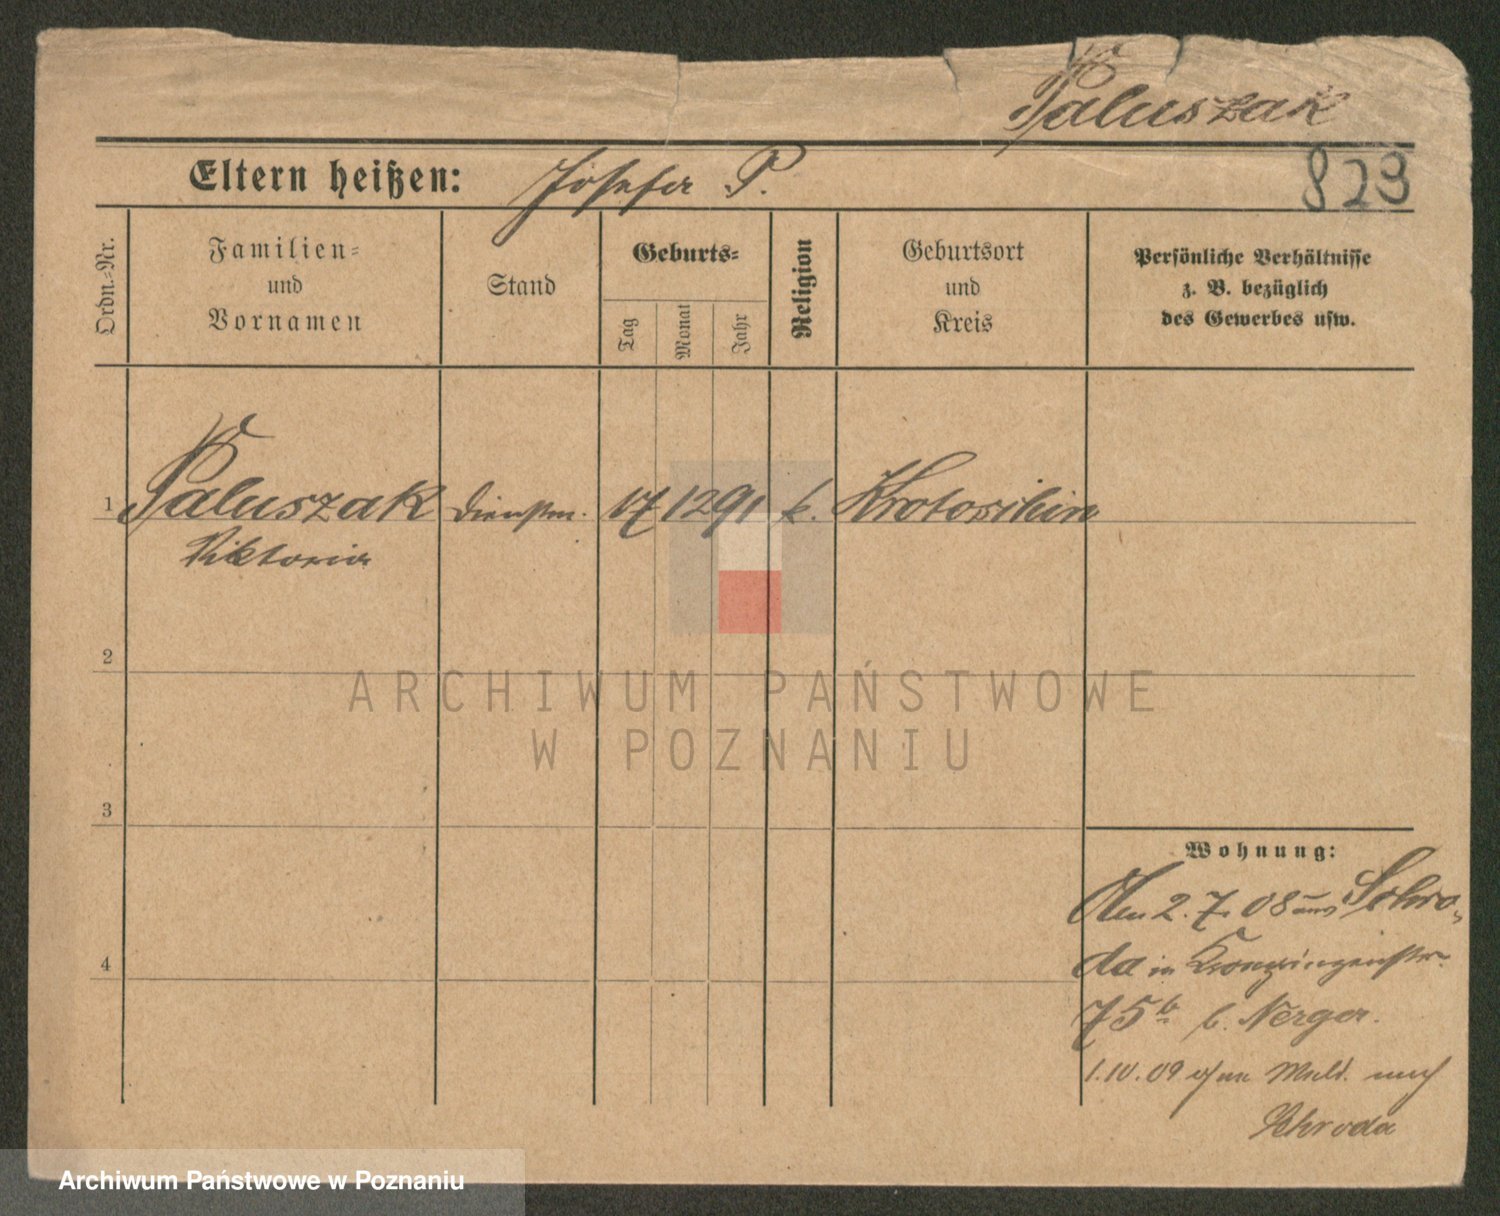 Paluszak
823
Eltern heißen: Josefa P.
Ordn.-Nr.
Familien-
und
Vornamen
Stand
Geburts-
Tag
Monat
Jahr
Religion
Geburtsort
und
Kreis
Persönliche Verhältnisse
z. B. bezüglich
des Gewerbes usw.
1 Paluszak Dienstm. 17 12 91 k.
Viktoria
2
3
4
ARCHIWUM PAŃSTWOWE
W POZNANIU
Wohnung:
Den 2. 7. 08 aus Schro-
da in Kronprinzenstr.
75b b. Nerger.
1.10.09 ohne Meld. nach
Schroda
Archiwum Państwowe w Poznaniu